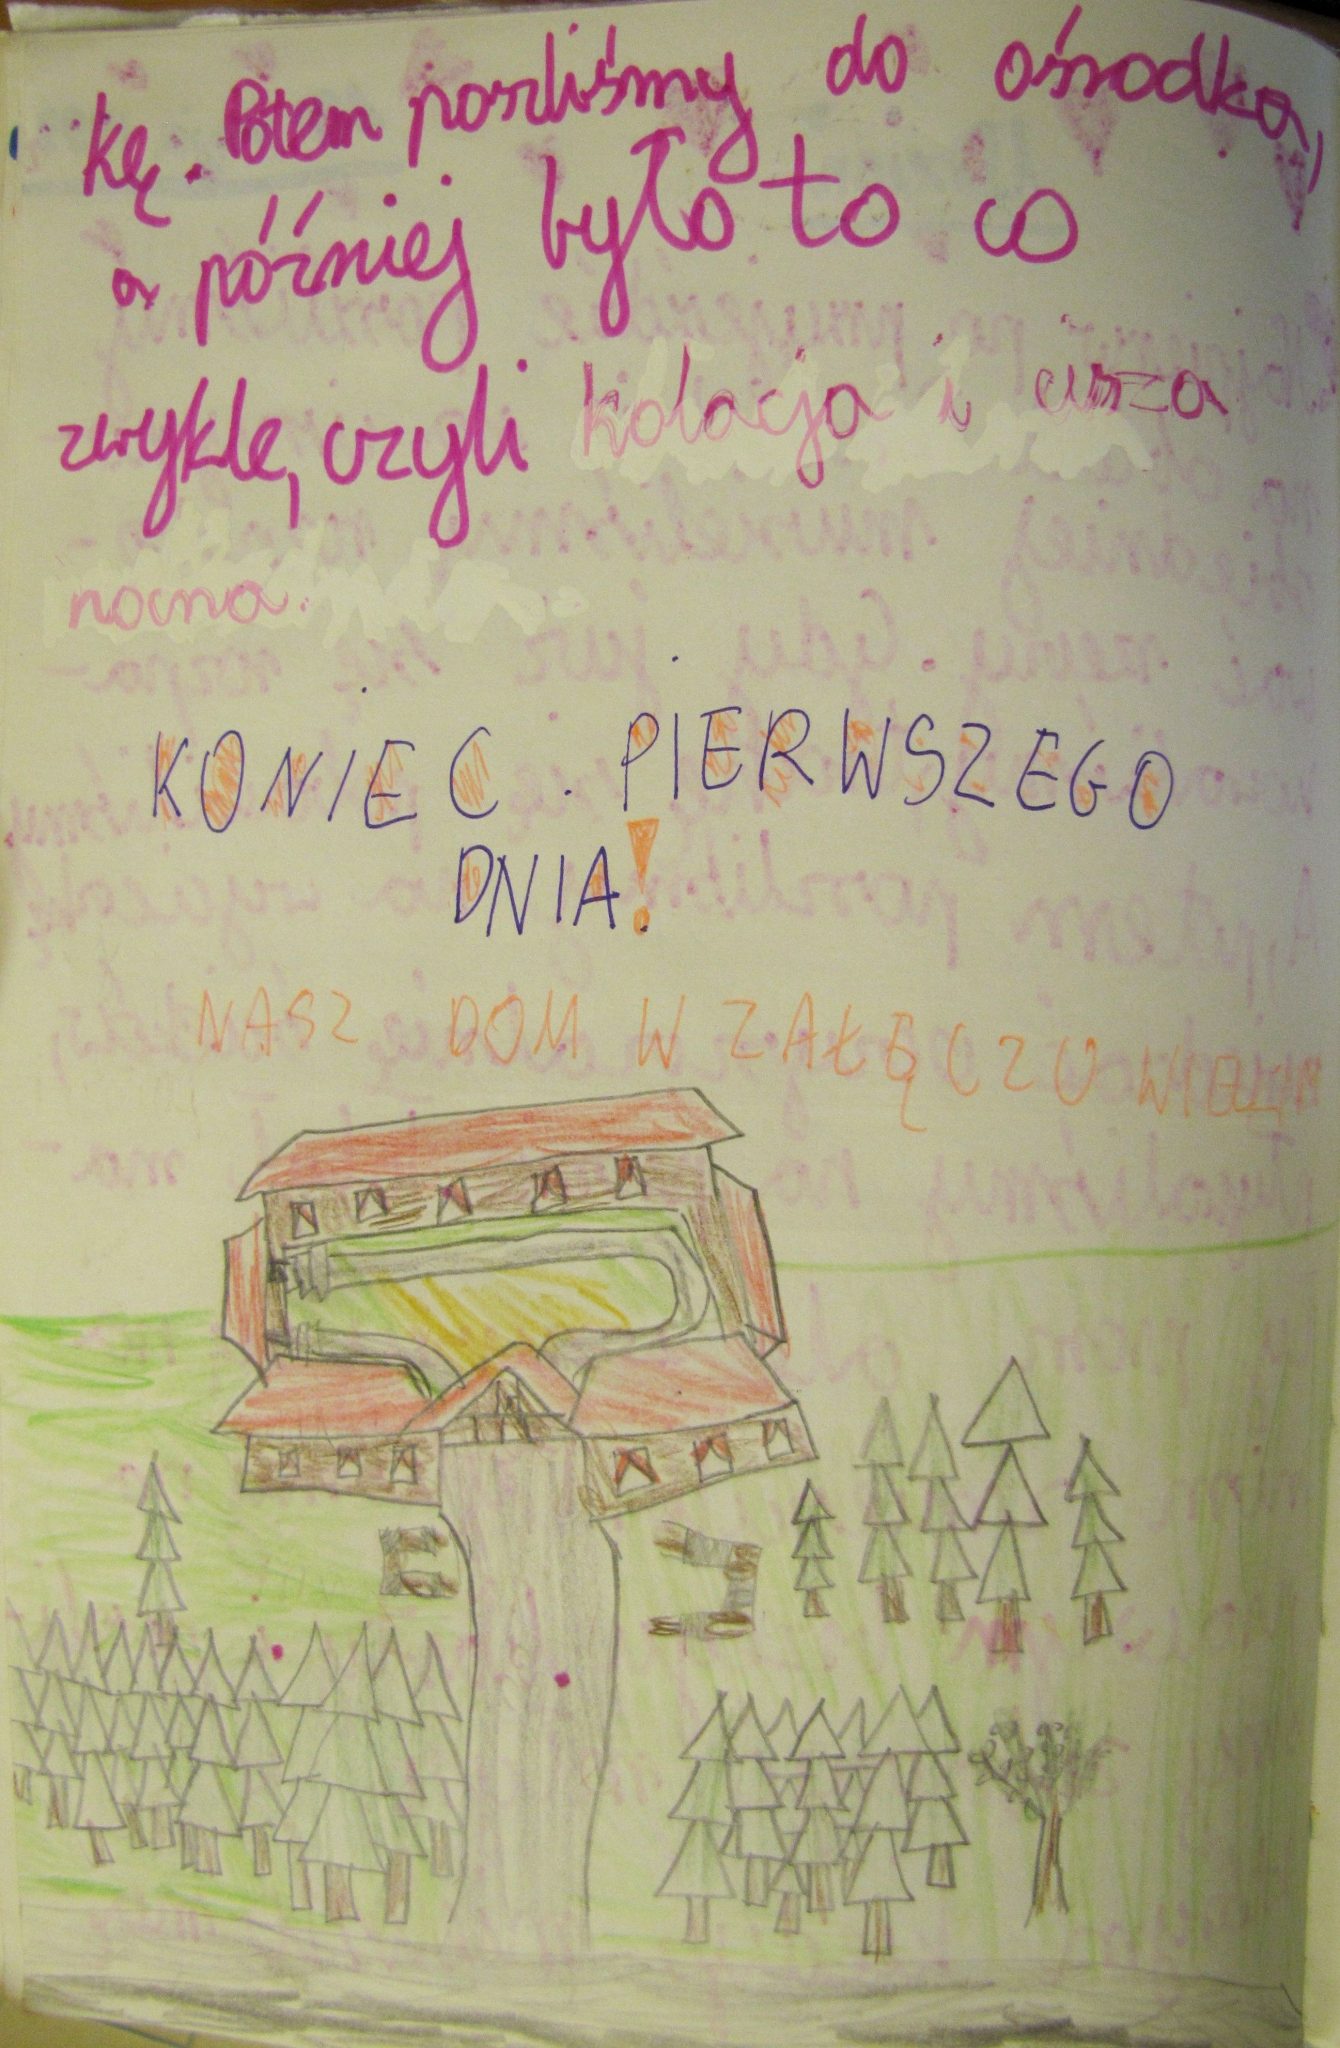 kę. Potem poszliśmy do ośrodka,
a później było to co
zwykle, czyli kolacja i cisza
nocna.
KONIEC. PIERWSZEGO
DNIA!
NASZ DOM W ZAŁĘCZU WIELKIM